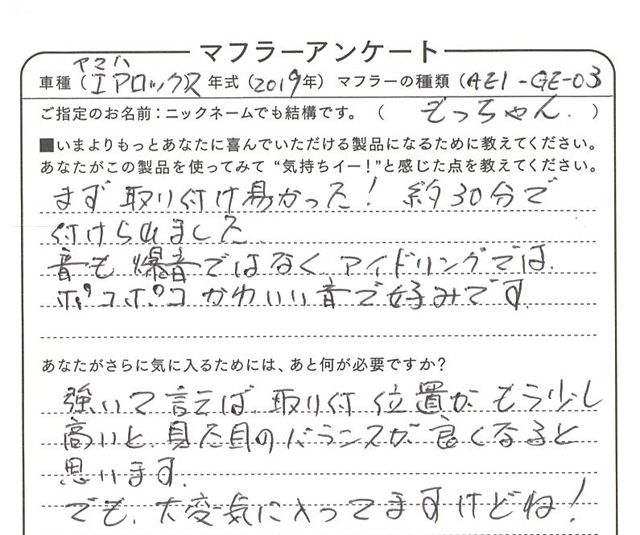 マフラーアンケート
ヤマハ
車種（エアロックス 年式（2019年）マフラーの種類（AE1-GE-03
ご指定のお名前：ニックネームでも結構です。（ ぞっちゃん. ）
■いまよりもっとあなたに喜んでいただける製品になるために教えてください。
あなたがこの製品を使ってみて“気持ちイー！”と感じた点を教えてください。
まず取り付け易かった！ 約30分で
付けられました
音も爆音ではなく、アイドリングでは、
ポコポコかわいい音で好みです
あなたがさらに気に入るためには、あと何が必要ですか？
強いて言えば、取り付位置がもう少し
高いと見た目のバランスが良くなると
思います.
でも、大変気に入ってますけどね！